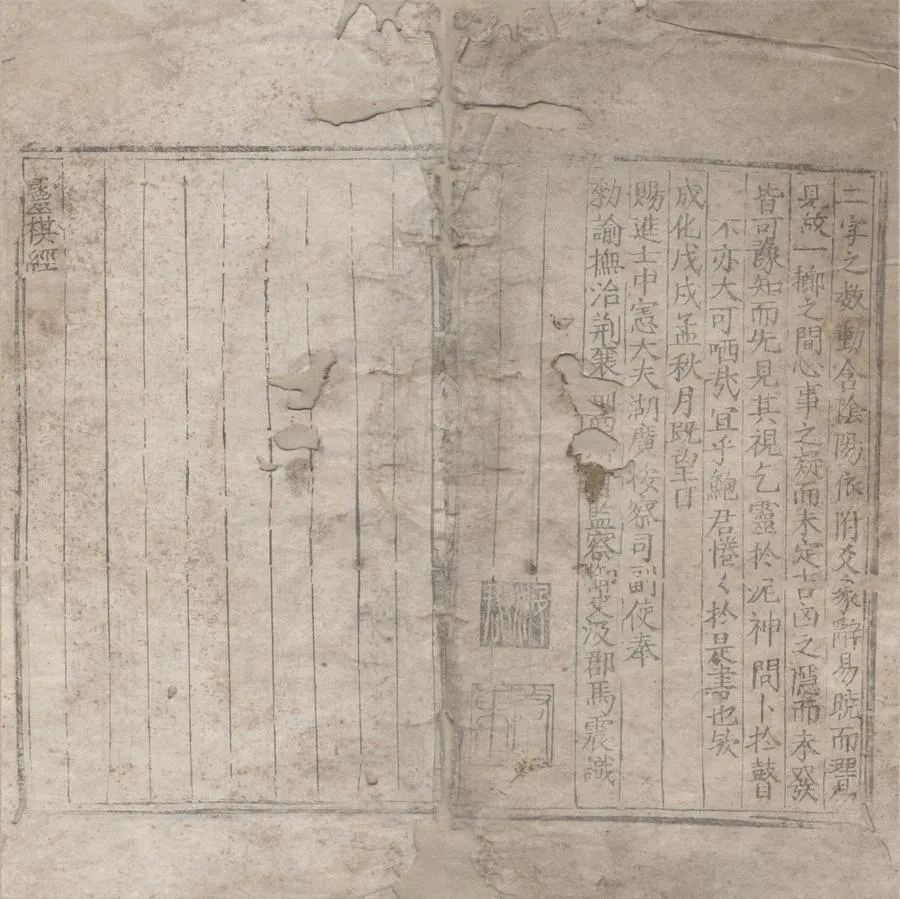 二字之數動含陰陽依附爻象辭易曉而理易
見故一擲之間心事之疑而未定吉凶之隱而未發
皆可豫知而先見其視乞靈扵泥神問卜扵瞽
不亦大可哂哉宜乎鮑君惓〻扵是書也欤
成化戊戌孟秋月既望日
賜進士中憲大夫湖廣按察司副使奉
勑諭撫治荆襄 監察御史汲郡馬震識
靈棋經